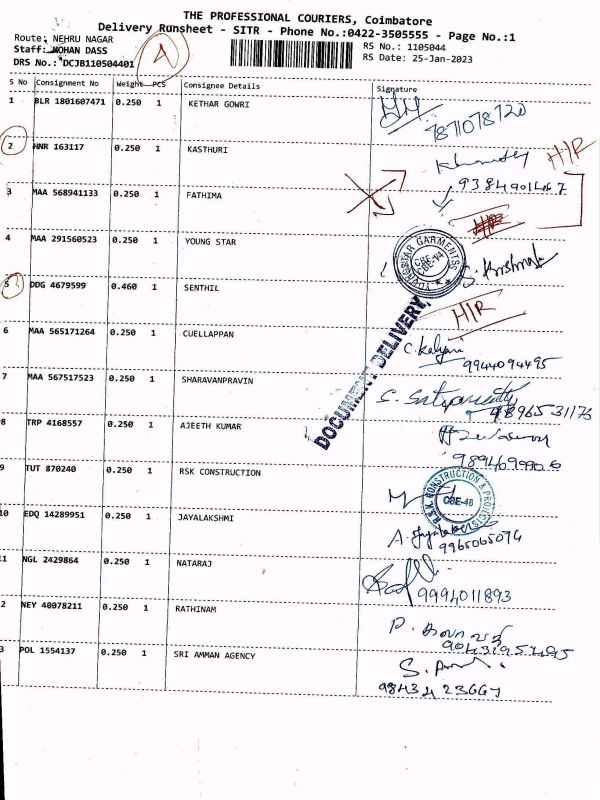 THE PROFESSIONAL COURIERS, Coimbatore
Delivery Runsheet - SITR - Phone No.:0422-3505555 - Page No.:1
Route: NEHRU NAGAR
Staff: MOHAN DASS
DRS No.: DCJB110504401
A
RS No.: 1105044
RS Date: 25-Jan-2023
S No Consignment No Weight PCS Consignee Details Signature
1 BLR 1801607471 0.250 1 KETHAR GOWRI
7871078720
2 HNR 163117 0.250 1 KASTHURI H/R
9384901467
3 MAA 568941133 0.250 1 FATHIMA
4 MAA 291560523 0.250 1 YOUNG STAR
YOUNGSTAR GARMENTSS CBE-14
5 DDG 4679599 0.460 1 SENTHIL H/R
DOCUMENT DELIVERY
6 MAA 565171264 0.250 1 CUELLAPPAN C. Kalyani
9944094495
7 MAA 567517523 0.250 1 SHARAVANPRAVIN
8 TRP 4168557 0.250 1 AJEETH KUMAR
9 TUT 870240 0.250 1 RSK CONSTRUCTION
R.S.K. CONSTRUCTION & PROJECTS CBE-48
10 EDQ 14289951 0.250 1 JAYALAKSHMI
9965065074
11 NGL 2429864 0.250 1 NATARAJ
9994011893
2 NEY 40978211 0.250 1 RATHINAM
3 POL 1554137 0.250 1 SRI AMMAN AGENCY